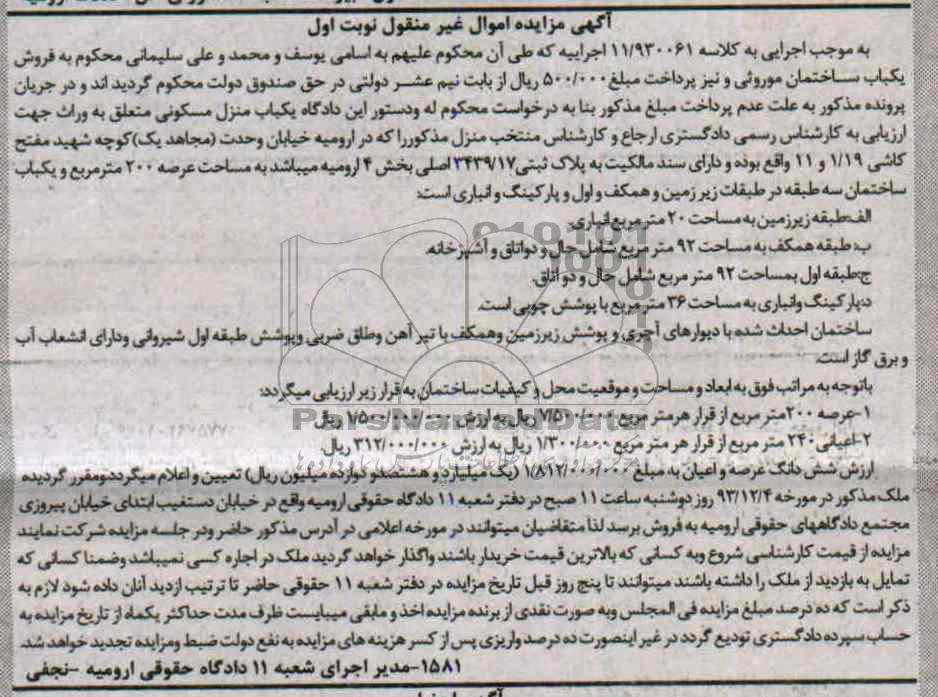 آگهی مزایده اموال غیر منقول نوبت اول
به موجب اجرایی به کلاسه ۱۱/۹۳۰۰۶۱ اجراییه که طی آن محکوم علیهم به اسامی یوسف و محمد و علی سلیمانی محکوم به فروش
یکباب ساختمان موروثی و نیز پرداخت مبلغ ۵۰۰/۰۰۰ ریال از بابت نیم عشر دولتی در حق صندوق دولت محکوم گردید اند و در جریان
پرونده مذکور به علت عدم پرداخت مبلغ مذکور بنا به درخواست محکوم له ودستور این دادگاه یکباب منزل مسکونی متعلق به وراث جهت
ارزیابی به کارشناس رسمی دادگستری ارجاع و کارشناس منتخب منزل مذکوررا که در ارومیه خیابان وحدت (مجاهد یک)کوچه شهید مفتح
کاشی ۱/۱۹ و ۱۱ واقع بوده و دارای سند مالکیت به پلاک ثبتی ۳۴۳۹/۱۷ اصلی بخش ۴ ارومیه میباشد به مساحت عرصه ۲۰۰ مترمربع و یکباب
ساختمان سه طبقه در طبقات زیر زمین و همکف و اول و پارکینگ و انباری است:
الف:طبقه زیرزمین به مساحت ۲۰ متر مربع انباری.
ب: طبقه همکف به مساحت ۹۲ متر مربع شامل حال و دواتاق و آشپزخانه.
ج:طبقه اول بمساحت ۹۲ متر مربع شامل حال و دو اتاق.
د:پارکینگ وانباری به مساحت ۳۶ متر مربع با پوشش چوبی است.
ساختمان احداث شده با دیوارهای آجری و پوشش زیرزمین وهمکف با تیر آهن وطاق ضربی وپوشش طبقه اول شیروانی ودارای انشعاب آب
و برق گاز است.
باتوجه به مراتب فوق به ابعاد و مساحت و موقعیت محل و کیفیات ساختمان به قرار زیر ارزیابی میگردد:
۱-عرصه ۲۰۰متر مربع از قرار هرمتر مربع ۷/۵۰۰/۰۰۰ ریال به ارزش ۱/۵۰۰/۰۰۰/۰۰۰ ریال
۲-اعیانی ۲۴۰ متر مربع از قرار هر متر مربع ۱/۳۰۰/۰۰۰ ریال به ارزش ۳۱۲/۰۰۰/۰۰۰ ریال.
ارزش شش دانگ عرصه و اعیان به مبلغ ۱/۸۱۲/۰۰۰/۰۰۰ (یک میلیارد و هشتصدو دوازده میلیون ریال) تعیین و اعلام میگرددومقرر گردیده
ملک مذکور در مورخه ۹۳/۱۲/۴ روز دوشنبه ساعت ۱۱ صبح در دفتر شعبه ۱۱ دادگاه حقوقی ارومیه واقع در خیابان دستغیب ابتدای خیابان پیروزی
مجتمع دادگاههای حقوقی ارومیه به فروش برسد لذا متقاضیان میتوانند در مورخه اعلامی در آدرس مذکور حاضر ودر جلسه مزایده شرکت نمایند
مزایده از قیمت کارشناسی شروع وبه کسانی که بالاترین قیمت خریدار باشند واگذار خواهد گردید ملک در اجاره کسی نمیباشد وضمنا کسانی که
تمایل به بازدید از ملک را داشته باشند میتوانند تا پنج روز قبل تاریخ مزایده در دفتر شعبه ۱۱ حقوقی حاضر تا ترتیب ازدید آنان داده شود لازم به
ذکر است که ده درصد مبلغ مزایده فی المجلس وبه صورت نقدی از برنده مزایده اخذ و مابقی میبایست ظرف مدت حداکثر یکماه از تاریخ مزایده به
حساب سپرده دادگستری تودیع گردد در غیر اینصورت ده درصد واریزی پس از کسر هزینه های مزایده به نفع دولت ضبط ومزایده تجدید خواهد شد.
۱۵۸۱-مدیر اجرای شعبه ۱۱ دادگاه حقوقی ارومیه -نجفی